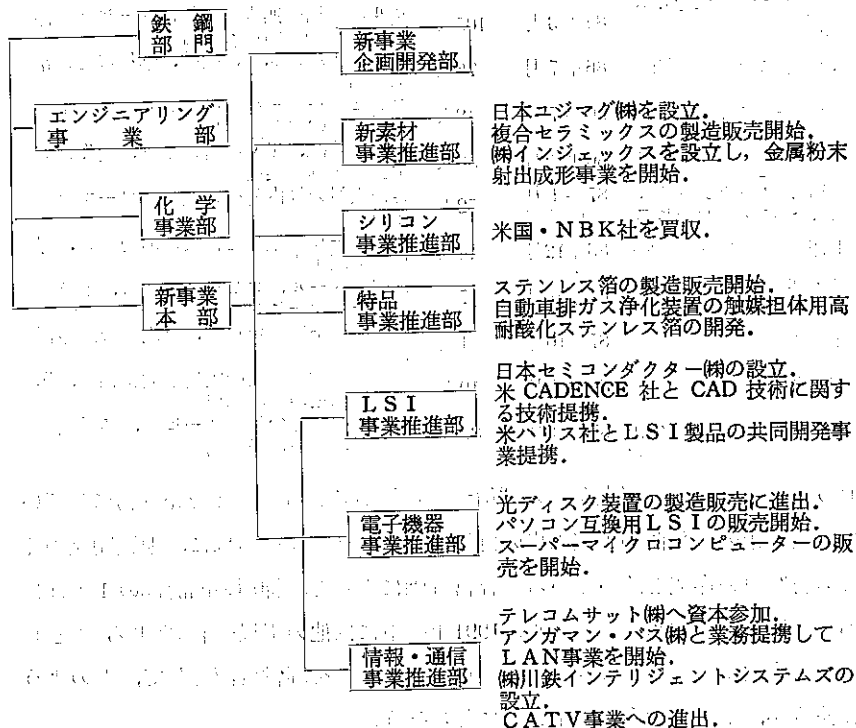 鉄鋼
部門
エンジニアリング
事業部
化学
事業部
新事業
本部
新事業
企画開発部
新素材
事業推進部
日本ユジマグ㈱を設立．
複合セラミックスの製造販売開始．
㈱インジェックスを設立し，金属粉末
射出成形事業を開始．
シリコン
事業推進部
米国・NBK社を買収．
特品
事業推進部
ステンレス箔の製造販売開始．
自動車排ガス浄化装置の触媒担体用高
耐酸化ステンレス箔の開発．
LSI
事業推進部
日本セミコンダクター㈱の設立．
米 CADENCE 社と CAD 技術に関す
る技術提携．
米ハリス社とLSI製品の共同開発事
業提携．
電子機器
事業推進部
光ディスク装置の製造販売に進出．
パソコン互換用LSIの販売開始．
スーパーマイクロコンピューターの販
売を開始．
情報・通信
事業推進部
テレコムサット㈱へ資本参加．
アンガマン・バス㈱と業務提携して
LAN事業を開始．
㈱川鉄インテリジェントシステムズの
設立．
CATV事業への進出．